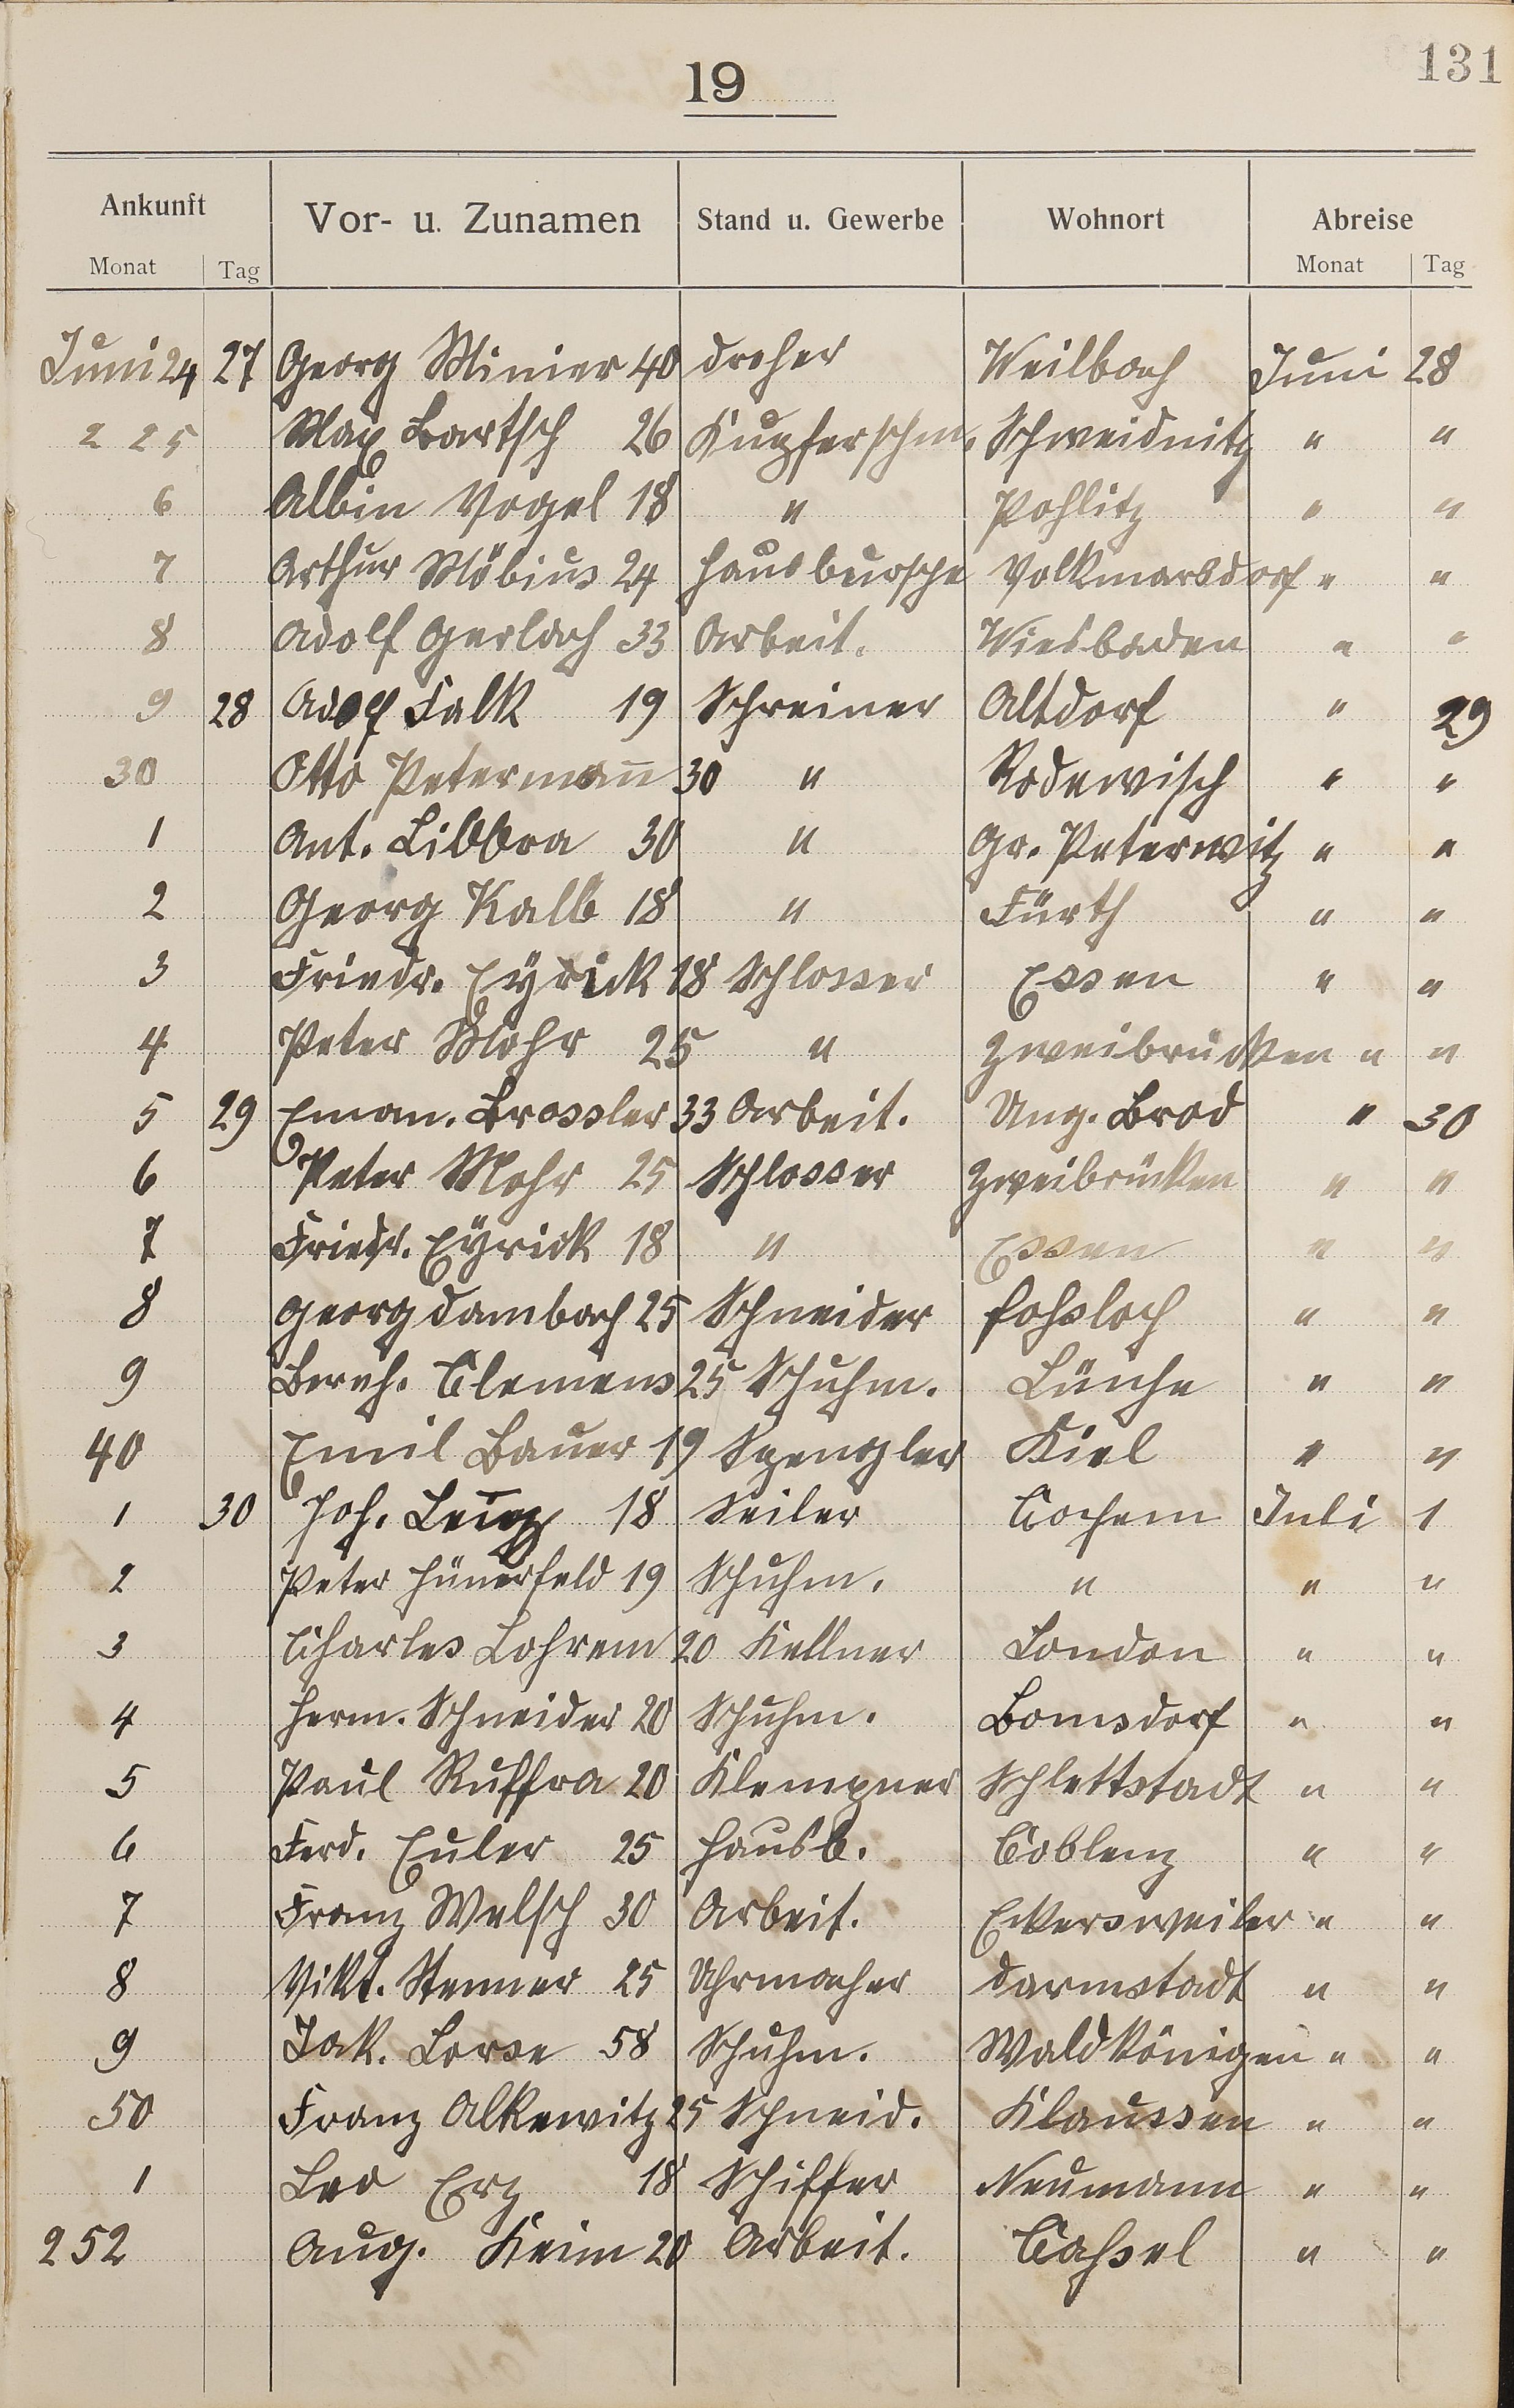 131
19
Ankunft Vor- u. Zunamen Stand u. Gewerbe Wohnort Abreise
Monat Tag Monat Tag
Juni 24 27 Georg Minier 40 Dreher Weilbach Juni 28
225 Max Bartsch 26 Kupferschm. Schweidnitz " "
6 Albin Vogel 18 " Pohlitz " "
7 Arthur Möbius 24 Hausbursche Volkmarsdorf " "
8 Adolf Gerlach 33 Arbeit. Wiesbaden " "
9 28 Adolf Falk 19 Schreiner Altdorf " 29
30 Otto Petermañ 30 " Rodewisch " "
1 Ant. Libbra 30 " Gr. Peterwitz " "
2 Georg Kalb 18 " Fürth " "
3 Friedr. Eÿrick 18 Schlosser Essen " "
4 Peter Mohr 25 " Zweibrücken " "
5 29 Eman. Brossler 33 Arbeit. Ung. Brod " 30
6 Peter Mohr 25 Schlosser Zweibrücken " "
7 Friedr. Eÿrick 18 " Essen " "
8 Georg Dambach 25 Schneider Hohsloch " "
9 Bernh. Clemens 25 Schuhm. " "
40 Emil Bauer 19 Spengler Kiel " "
1 30 Joh. 18 Seiler Cochem Juli 1
2 Peter Hünerfeld 19 Schuhm. " " "
3 Charles Lohrem 20 Kellner London " "
4 Herm. Schneider 20 Schuhm. Bomsdorf " "
5 Paul Ruffra 20 Klempner Schlettstadt " "
6 Ferd. Euler 25 Hausb. Coblenz " "
7 Franz Welsch 30 Arbeit. Eckersweiler " "
8 Vikt. Stenner 25 Uhrmacher Darmstadt " "
9 Jak. Lorse 58 Schuhm. Waldkönigen " "
50 Franz Alkewitz 25 Schneid. Klaussen " "
1 Leo Erz 18 Schiffer Neumann " "
252 Aug. Keim 20 Arbeit. Cassel " "